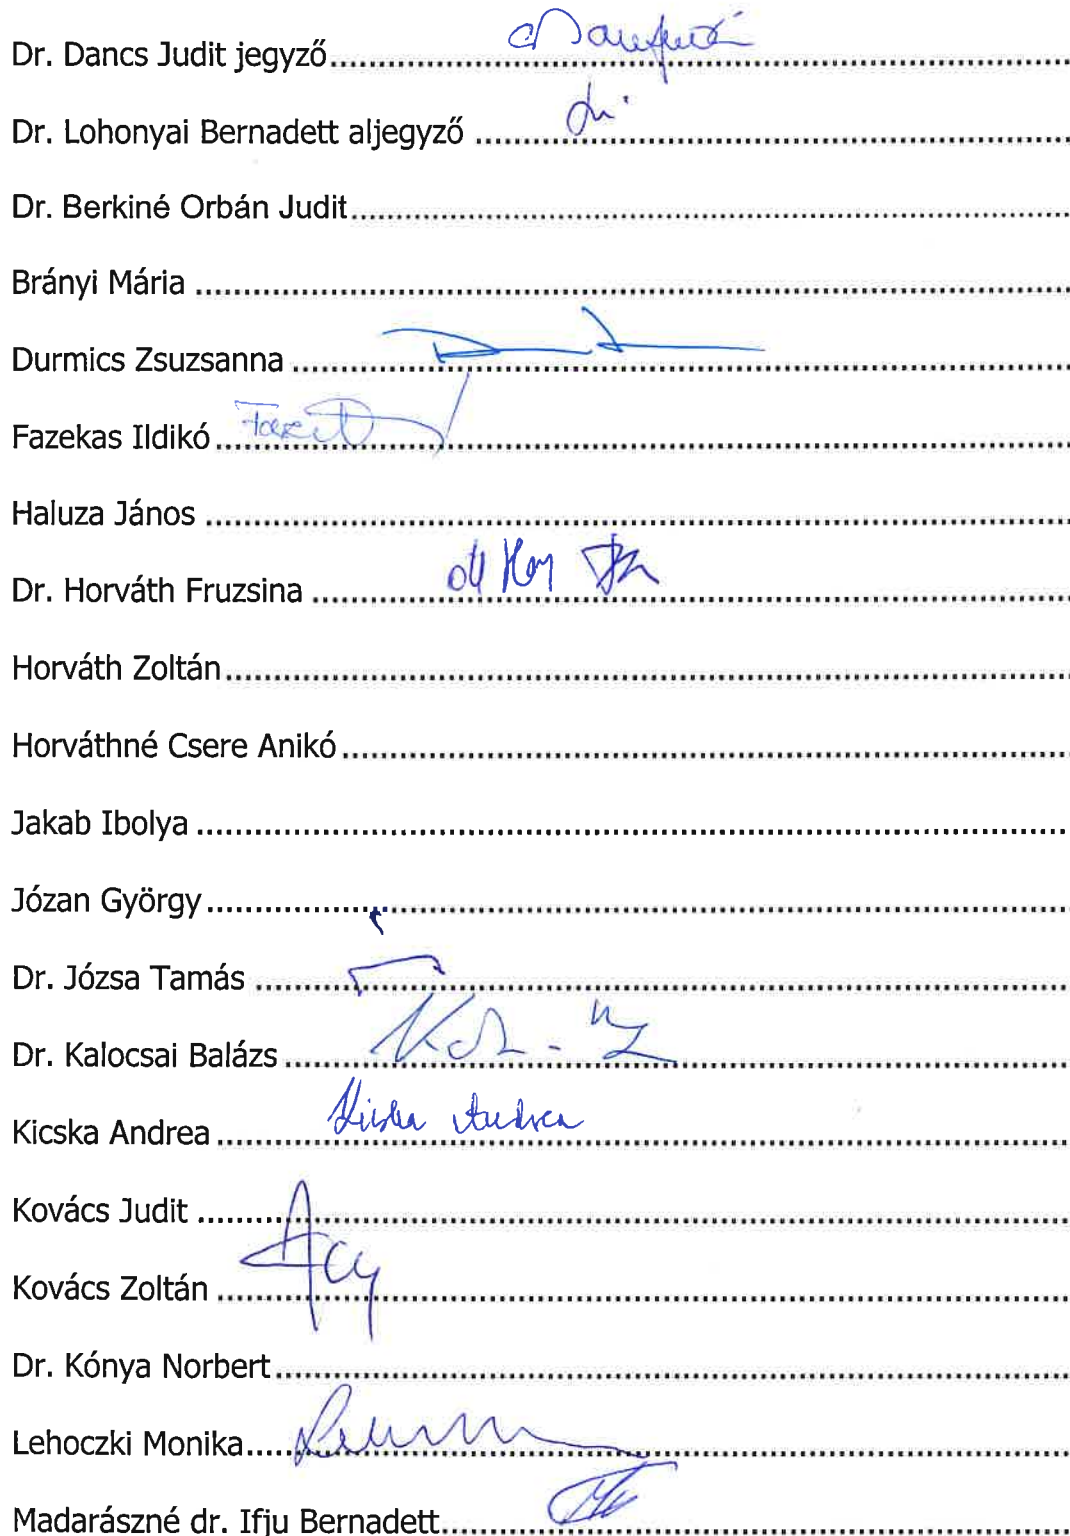 Dr. Dancs Judit jegyző
Dr. Lohonyai Bernadett aljegyző
Dr. Berkiné Orbán Judit
Brányi Mária
Durmics Zsuzsanna
Fazekas Ildikó
Haluza János
Dr. Horváth Fruzsina
Horváth Zoltán
Horváthné Csere Anikó
Jakab Ibolya
Józan György
Dr. Józsa Tamás
Dr. Kalocsai Balázs
Kicska Andrea Kicska Andrea
Kovács Judit
Kovács Zoltán
Dr. Kónya Norbert
Lehoczki Monika
Madarászné dr. Ifju Bernadett